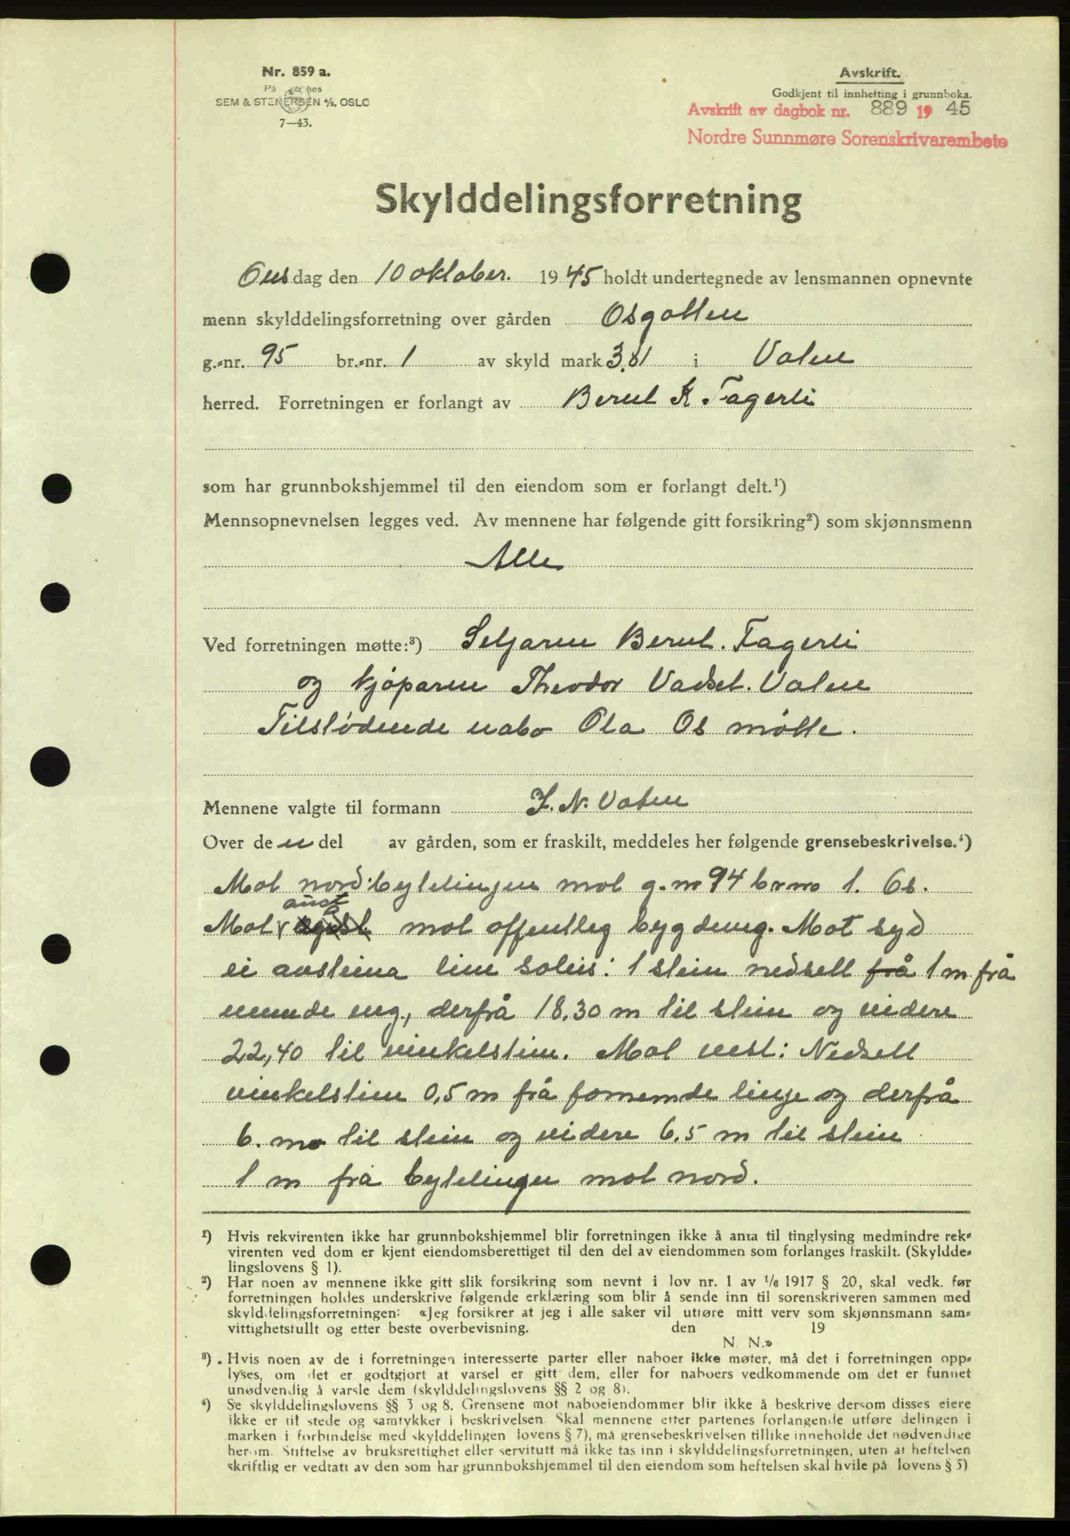 Nr. 859 a.
På lager hos
SEM & STENERSEN A/S, OSLO
7—43.
Avskrift.
Godkjent til innhefting i grunnboka.
Avskrift av dagbok nr. 889 19 45
Nordre Sunnmøre Sorenskrivarembete
Skylddelingsforretning
Onsdag den 10 oktober. 1945 holdt undertegnede av lensmannen opnevnte
menn skylddelingsforretning over gården Osgotten
g.-nr. 95 br.-nr. 1 av skyld mark 3,81 i Vaten
herred. Forretningen er forlangt av Bernt K Fagerli
som har grunnbokshjemmel til den eiendom som er forlangt delt.¹)
Mennsopnevnelsen legges ved. Av mennene har følgende gitt forsikring²) som skjønnsmenn
Alle
Ved forretningen møtte:³) Seljaren Bernt. Fagerli
og kjøparen Theodor Vadset. Vaten
Tilstødende nabo Ola Os møtte.
Mennene valgte til formann J. N. Vaten
Over de n del av gården, som er fraskilt, meddeles her følgende grensebeskrivelse.⁴)
Mot nord: bytelingen mot g.nr 94 br no 1. Os.
Mot aust mot offentleg bygdeveg. Mot syd
ei austeina line soleis: 1 stein nedsett frå 1 m frå
nemnde veg, derfrå 18,30 m til stein og videre
22,40 til vinkelstein. Mot vest: Nedsett
vinkelstein 0,5 m frå fornemde linje og derfrå
6. m til stein og videre 6,5 m til stein
1 m frå bytelingen mot nord.
¹) Hvis rekvirenten ikke har grunnbokshjemmel blir forretningen ikke å anta til tinglysing medmindre rek-
virenten ved dom er kjent eiendomsberettiget til den del av eiendommen som forlanges fraskilt. (Skyldde-
lingslovens § 1).
²) Har noen av mennene ikke gitt slik forsikring som nevnt i lov nr. 1 av 1/6 1917 § 20, skal vedk. før
forretningen holdes underskrive følgende erklæring som blir å sende inn til sorenskriveren sammen med
skylddelingsforretningen: «Jeg forsikrer at jeg i alle saker vil utføre mitt verv som skjønnsmann sam-
vittighetsfullt og etter beste overbevisning. den 19
N. N.»
³) Hvis noen av de i forretningen interesserte parter eller naboer ikke møter, må det i forretningen opp-
lyses, om det er godtgjort at varsel er gitt dem, eller for naboers vedkommende om det er funnet
unødvendig å varsle dem (skylddelingslovens §§ 2 og 8).
⁴) Se skylddelingslovens §§ 3 og 8. Grensene mot naboeiendommer blir ikke å beskrive dersom disses eiere
ikke er til stede og samtykker i beskrivelsen. Skal mennene etter partenes forlangende utføre delingen i
marken i forbindelse med skylddelingen (lovens § 7), må grensebeskrivelsen tillike inneholde det nødvendige
herom. Stiftelse av bruksrettighet eller servitutt må ikke tas inn i skylddelingsforretningen, uten at heftelsen
skriftlig er vedtatt av den som har grunnbokshjemmel til den eiendom som heftelsen skal hvile på (lovens § 5)